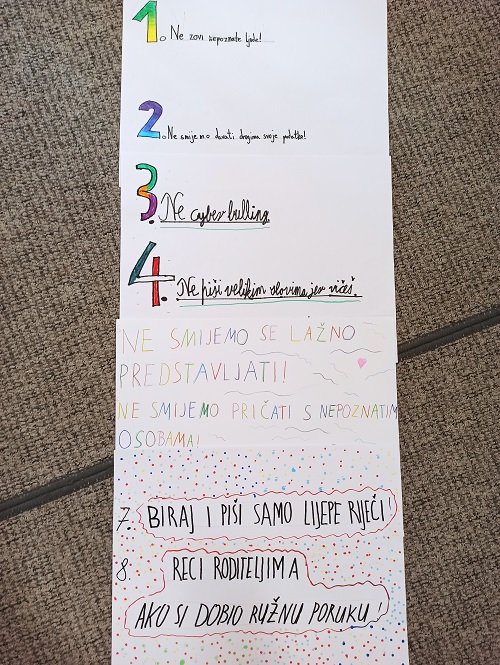 1. Ne zovi nepoznate ljude!
2. Ne smijemo davati drugima svoje podatke!
3. Ne cyberbulling
4. Ne piši velikim slovima jer vičeš.
NE SMIJEMO SE LAŽNO
PREDSTAVLJATI!
NE SMIJEMO PRIČATI S NEPOZNATIM
OSOBAMA!
7. BIRAJ I PIŠI SAMO LIJEPE RIJEČI!
8. RECI RODITELJIMA
AKO SI DOBIO RUŽNU PORUKU!